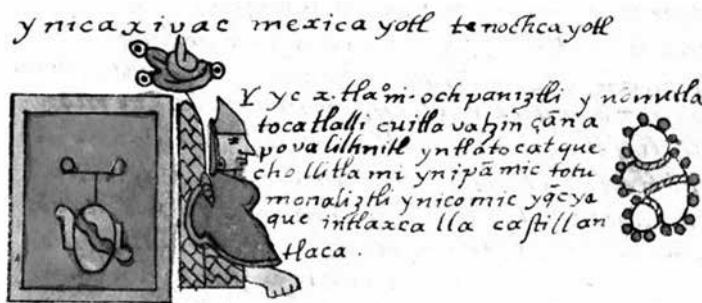 ynicaxivac mexicayotl tenochcayotl
Yyc x. tlaºm. ochpaniztli ynomutla
tocatlalli cuitlavatzin çān a
povalilhuitl yntlatocat que
chollitlami ynipā mic totu
monaliztli ynicomic yq̄cya
que intlaxcalla castillan
tlaca.